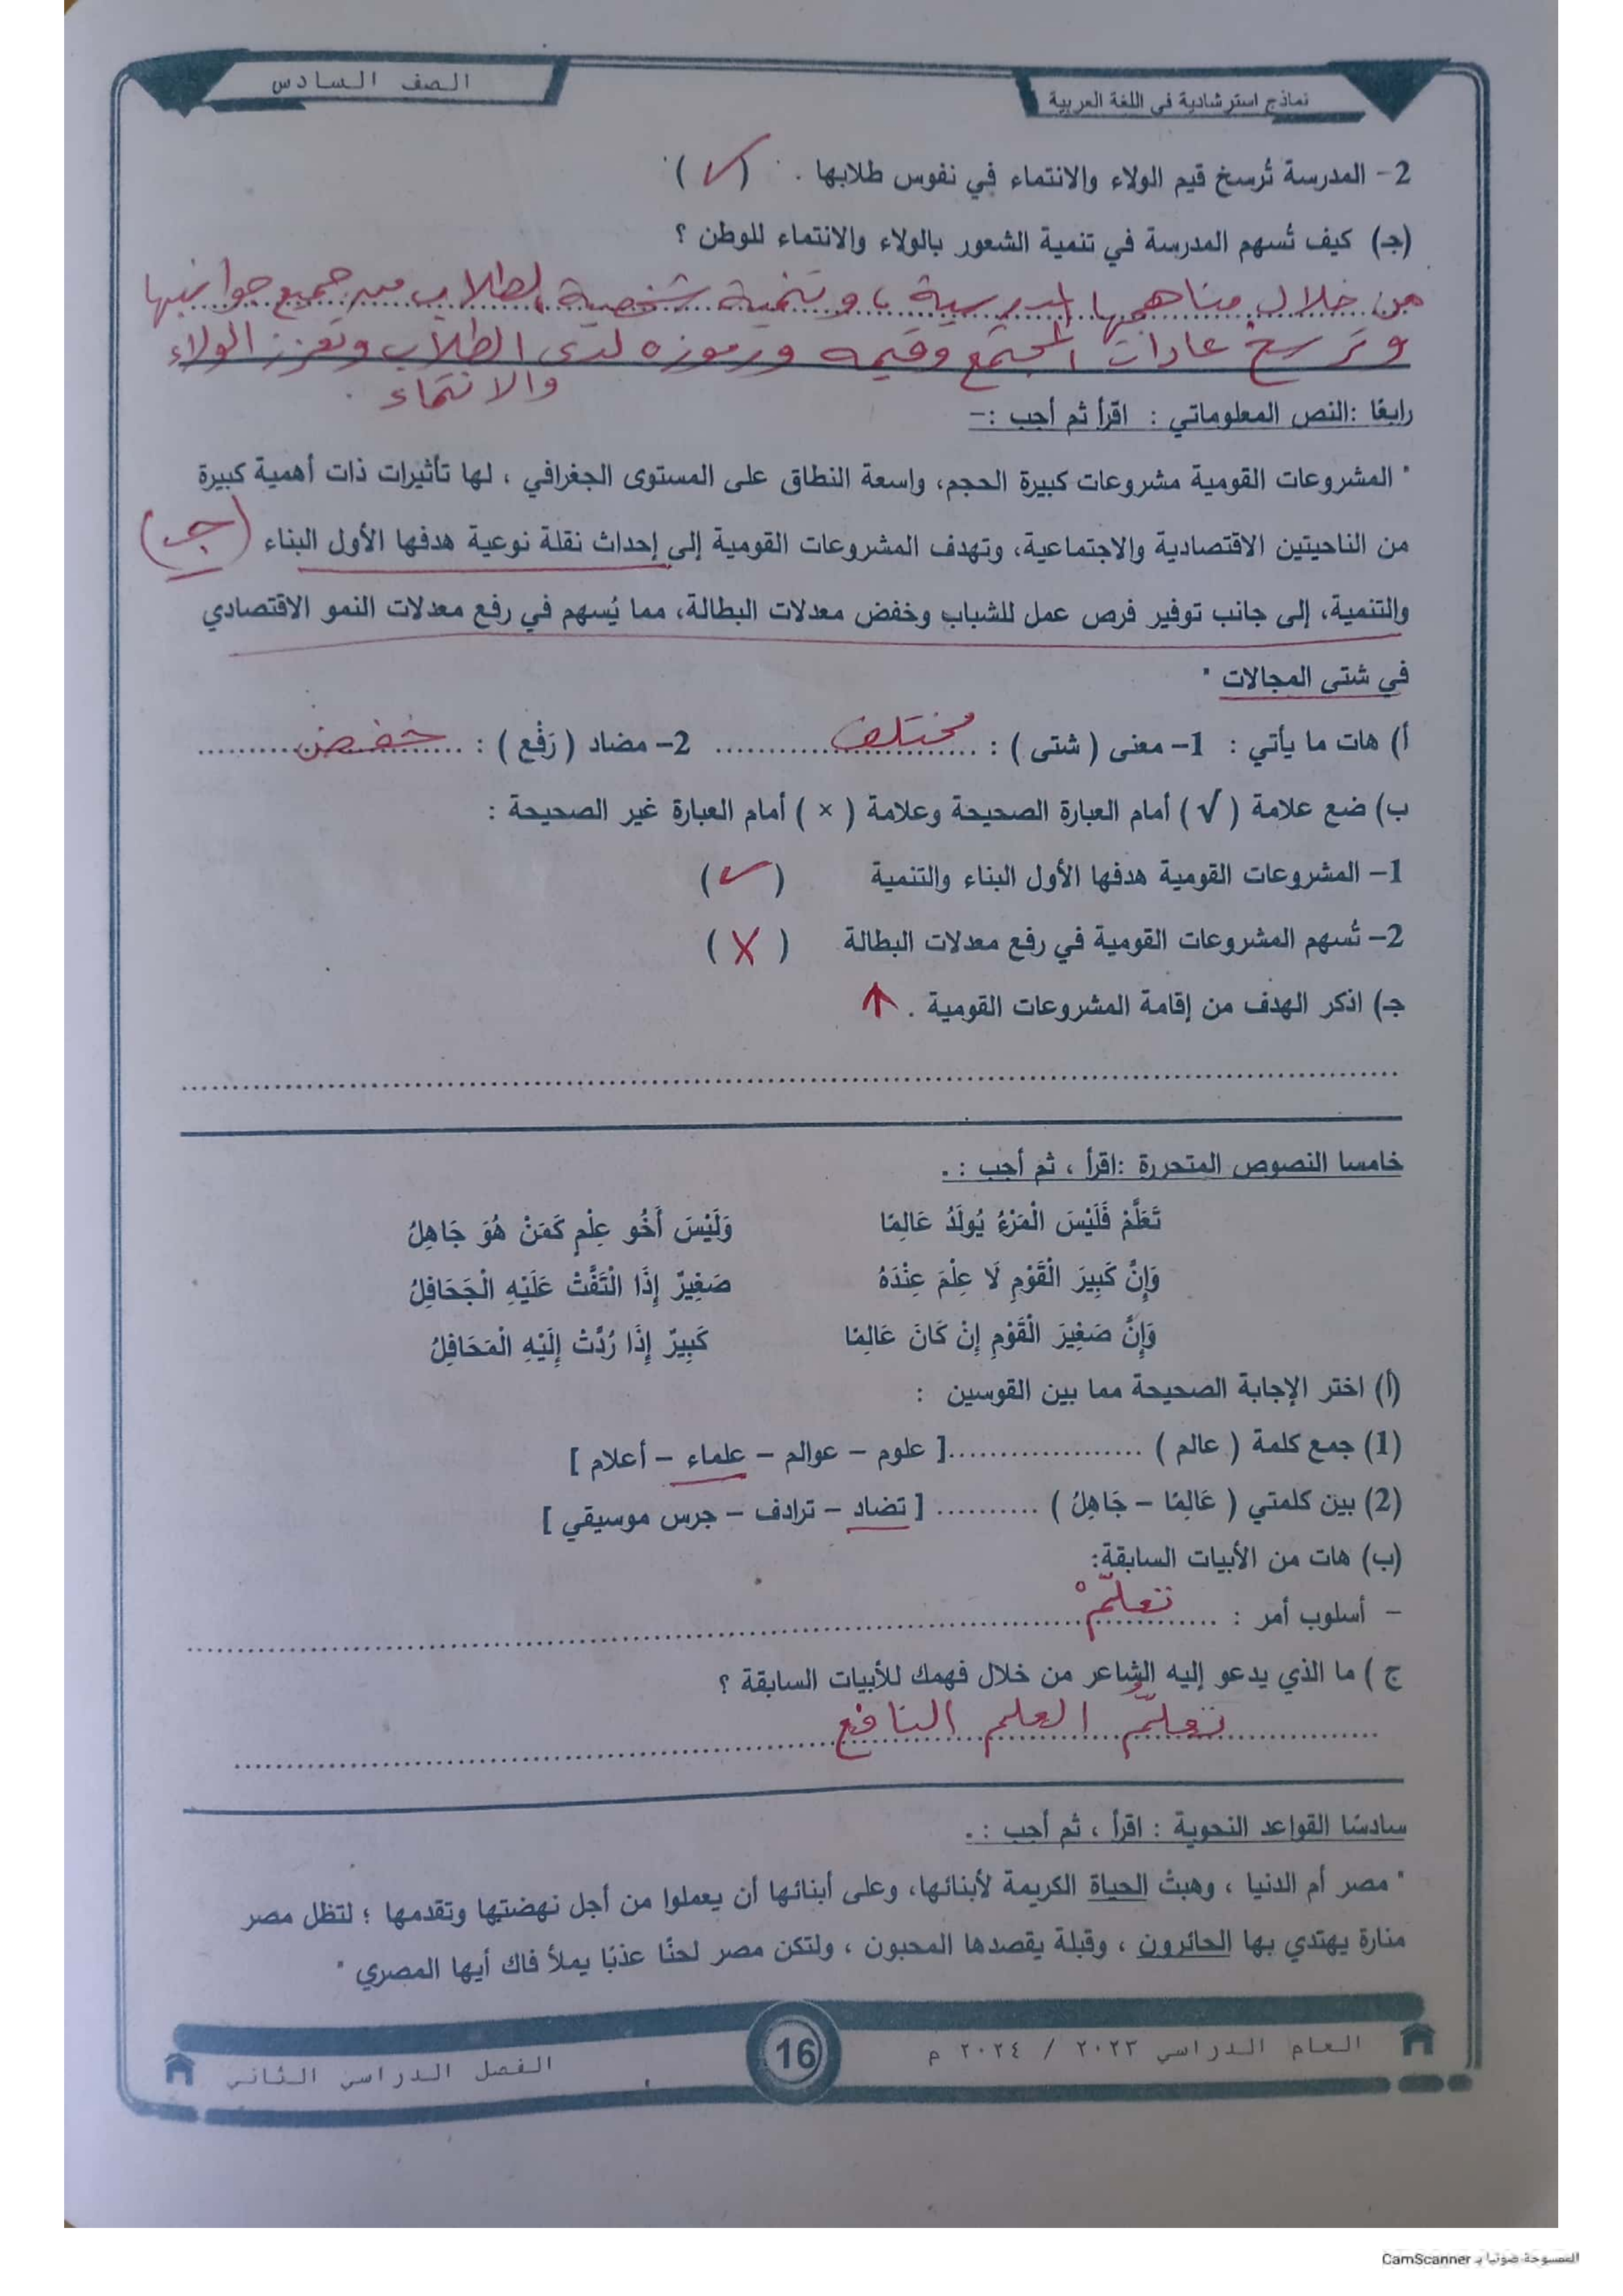 نماذج استرشادية في اللغة العربية
الصف السادس
2- المدرسة تُرسخ قيم الولاء والانتماء في نفوس طلابها . (√)
(جـ) كيف تُسهم المدرسة في تنمية الشعور بالولاء والانتماء للوطن ؟
من خلال مناهجها المدرسية ، وتنمية شخصية الطلاب من جميع جوانبها
وترسخ عادات المجتمع وقيمه ورموزه لدى الطلاب وتعزز الولاء
والانتماء .
رابعًا :النص المعلوماتي : اقرأ ثم أجب :-
" المشروعات القومية مشروعات كبيرة الحجم، واسعة النطاق على المستوى الجغرافي ، لها تأثيرات ذات أهمية كبيرة
من الناحيتين الاقتصادية والاجتماعية، وتهدف المشروعات القومية إلى إحداث نقلة نوعية هدفها الأول البناء (جـ)
والتنمية، إلى جانب توفير فرص عمل للشباب وخفض معدلات البطالة، مما يُسهم في رفع معدلات النمو الاقتصادي
في شتى المجالات "
أ) هات ما يأتي : 1- معنى ( شتى ) : مختلف 2- مضاد ( رَفْع ) : خفض
ب) ضع علامة ( √ ) أمام العبارة الصحيحة وعلامة ( × ) أمام العبارة غير الصحيحة :
1- المشروعات القومية هدفها الأول البناء والتنمية (√)
2- تُسهم المشروعات القومية في رفع معدلات البطالة (X)
جـ) اذكر الهدف من إقامة المشروعات القومية . ↑
خامسا النصوص المتحررة :اقرأ ، ثم أجب :.
تَعَلَّمْ فَلَيْسَ الْمَرْءُ يُولَدُ عَالِمًا وَلَيْسَ أَخُو عِلْمٍ كَمَنْ هُوَ جَاهِلُ
وَإِنَّ كَبِيرَ الْقَوْمِ لَا عِلْمَ عِنْدَهُ صَغِيرٌ إِذَا الْتَفَّتْ عَلَيْهِ الْجَحَافِلُ
وَإِنَّ صَغِيرَ الْقَوْمِ إِنْ كَانَ عَالِمًا كَبِيرٌ إِذَا رُدَّتْ إِلَيْهِ الْمَحَافِلُ
(أ) اختر الإجابة الصحيحة مما بين القوسين :
(1) جمع كلمة ( عالم ) ...................[ علوم – عوالم – علماء – أعلام ]
(2) بين كلمتي ( عَالِمًا – جَاهِلُ ) .......... [ تضاد – ترادف – جرس موسيقي ]
(ب) هات من الأبيات السابقة:
– أسلوب أمر : تعلّمْ
ج ) ما الذي يدعو إليه الشاعر من خلال فهمك للأبيات السابقة ؟
تعلّم العلم النافع
سادسًا القواعد النحوية : اقرأ ، ثم أجب :.
" مصر أم الدنيا ، وهبتْ الحياة الكريمة لأبنائها، وعلى أبنائها أن يعملوا من أجل نهضتِها وتقدمها ؛ لتظل مصر
منارة يهتدي بها الحائرون ، وقبلة يقصدها المحبون ، ولتكن مصر لحنًا عذبًا يملأ فاك أيها المصري "
العام الدراسي ٢٠٢٣ / ٢٠٢٤ م
16
الفصل الدراسي الثاني
الممسوحة ضوئيا بـ CamScanner